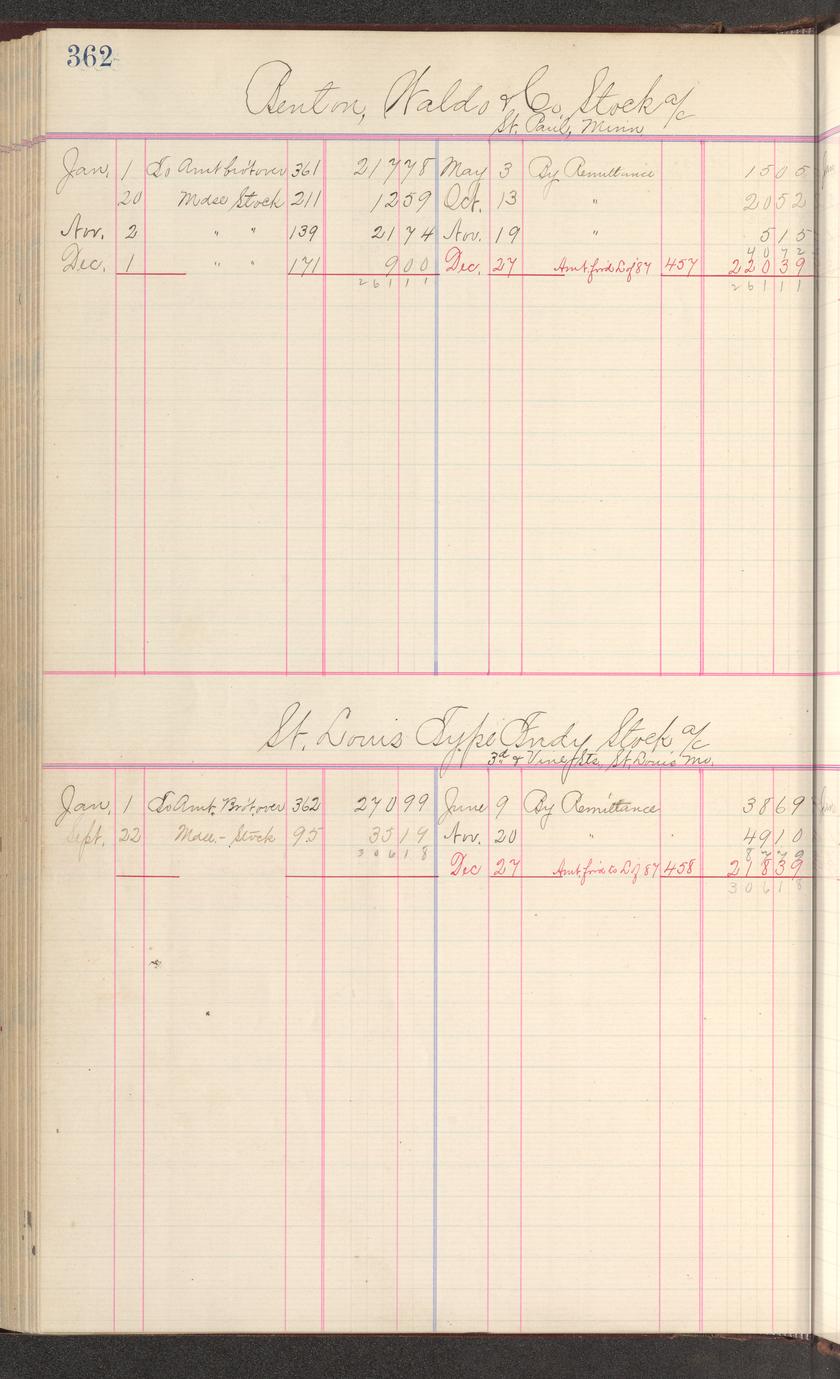 362
Benton, Waldo & Co. Stock a/c
St. Paul, Minn
Jan. 1 To Amt bro't over 361 217 78 May 3 By Remittance 15 05
20 Mdse Stock 211 12 59 Oct. 13 " 20 52
Nov. 2 " " 139 21 74 Nov. 19 " 5 15
40 72
Dec. 1 " " 171 9 00 Dec. 27 Amt. for'd L of 87 457 220 39
261 11 261 11
St. Louis Type Fndy. Stock a/c
3d & Vine Sts. St. Louis Mo.
Jan. 1 To Amt. Bro't over 362 270 99 June 9 By Remittance 38 69
Sept. 22 Mdse - Stock 95 35 19 Nov. 20 " 49 10
306 18 87 79
Dec 27 Amt. for'd to L of 87 458 218 39
306 18